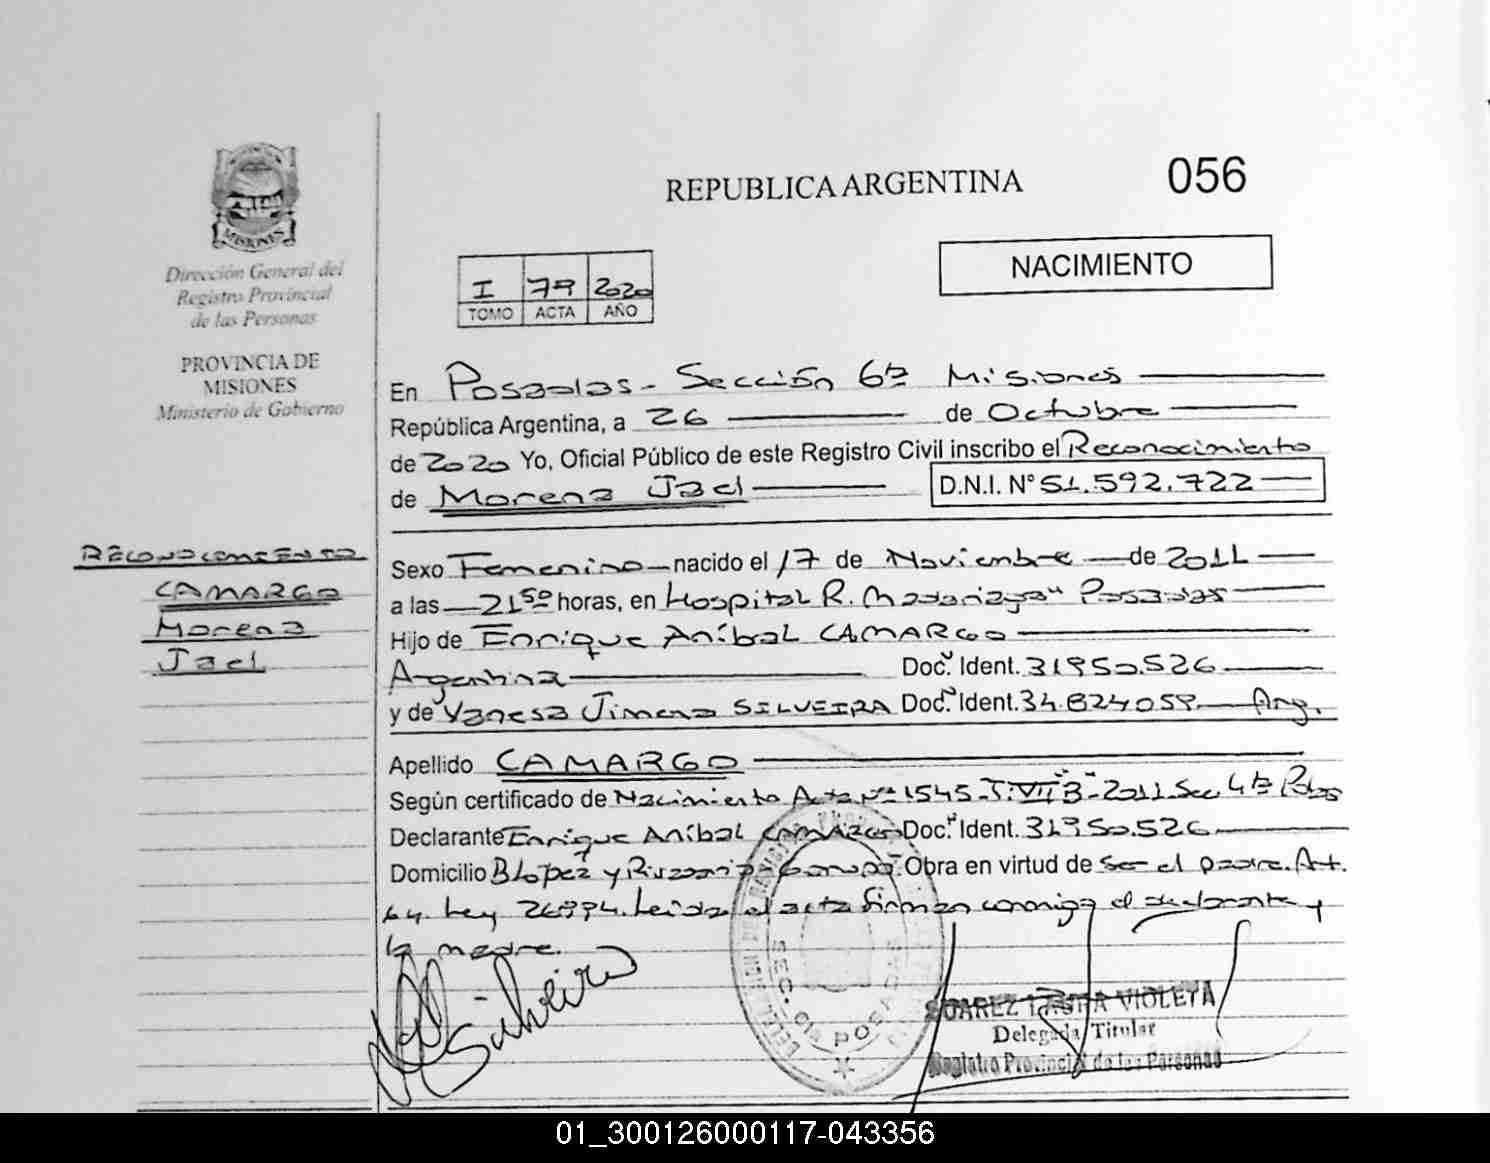 REPUBLICA ARGENTINA
056
MISIONES
Dirección General del
Registro Provincial
de las Personas
PROVINCIA DE
MISIONES
Ministerio de Gobierno
I 79 2020
TOMO ACTA AÑO
NACIMIENTO
En Posadas - Sección 6ta Misiones
República Argentina, a 26 de Octubre
de 2020 Yo, Oficial Público de este Registro Civil inscribo el Reconocimiento
de Morena Jael D.N.I. N° 51.592.722
RECONOCIMIENTO
CAMARGO
Morena
Jael
Sexo Femenino nacido el 17 de Noviembre de 2011
a las 21:50 horas, en Hospital R. Madariaga" Posadas
Hijo de Enrique Aníbal CAMARGO
Argentina Doc. Ident. 31950.526
y de Vanesa Jimena SILVEIRA Doc. Ident. 34.824059 Arg.
Apellido CAMARGO
Según certificado de Nacimiento Acta Nº 1545 T: VII "B" 2011 Sec. 4ta Pdas
Declarante Enrique Aníbal CAMARGO Doc. Ident. 31950.526
Domicilio B López y Obra en virtud de ser el padre. Art.
64. Ley 26994. Leída el acta firman conmigo el declarante y
la madre.
Silveira
SEC. 6ta POSADAS
SUAREZ VIOLETA
Delegada Titular
Registro Provincial de las Personas
01_300126000117-043356